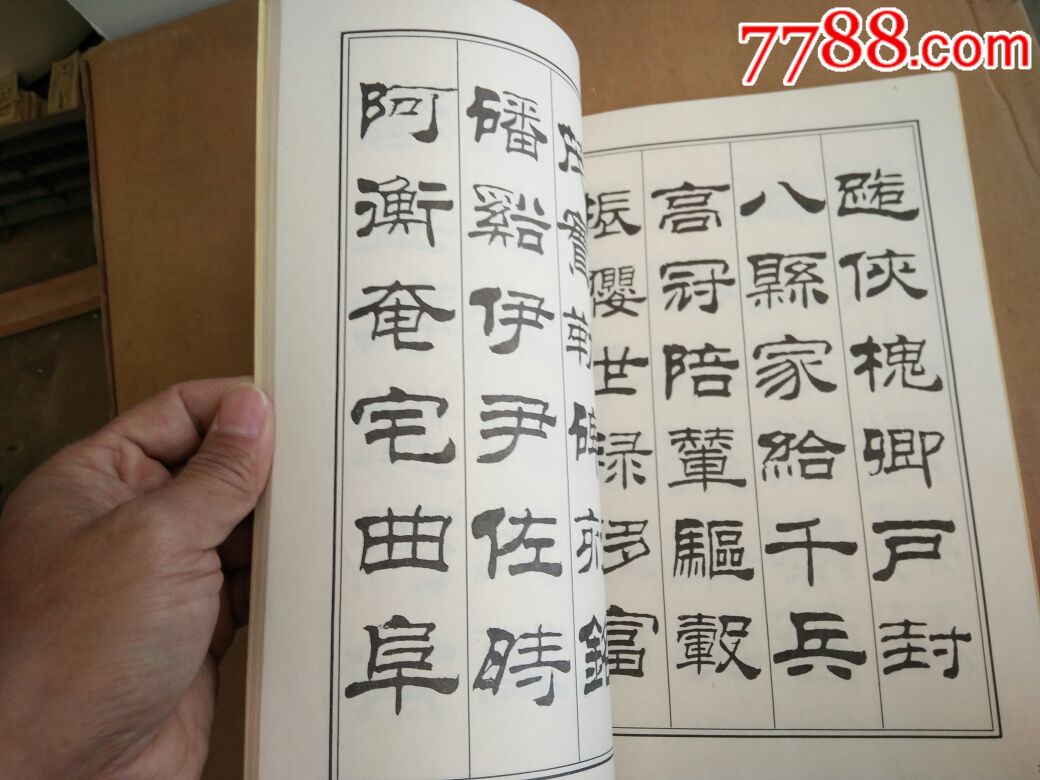 7788.com
路俠槐卿戶封
八縣家給千兵
高冠陪輦驅轂
振纓世祿侈富
茂實勒碑刻銘
磻谿伊尹佐時
阿衡奄宅曲阜